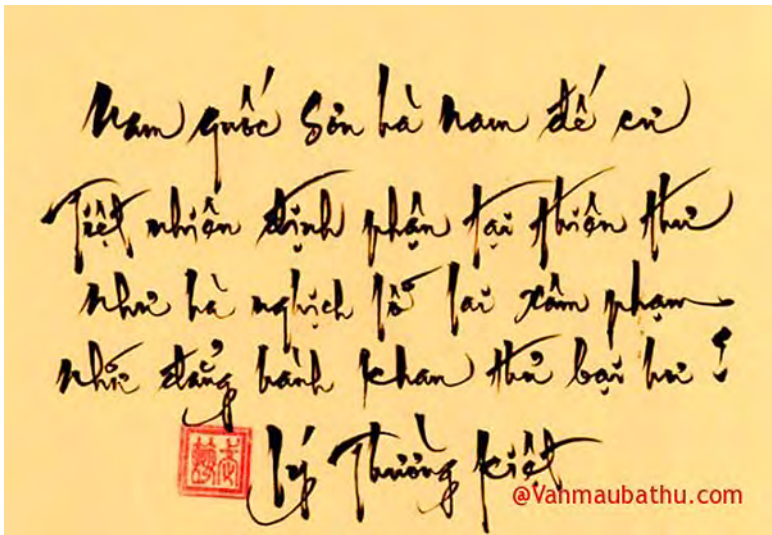 Nam quốc Sơn hà Nam đế cư
Tiệt nhiên định phận tại thiên thư
Như hà nghịch lỗ lai xâm phạm
Nhữ đẳng hành khan thủ bại hư!
Lý Thường Kiệt
@Vanmaubathu.com